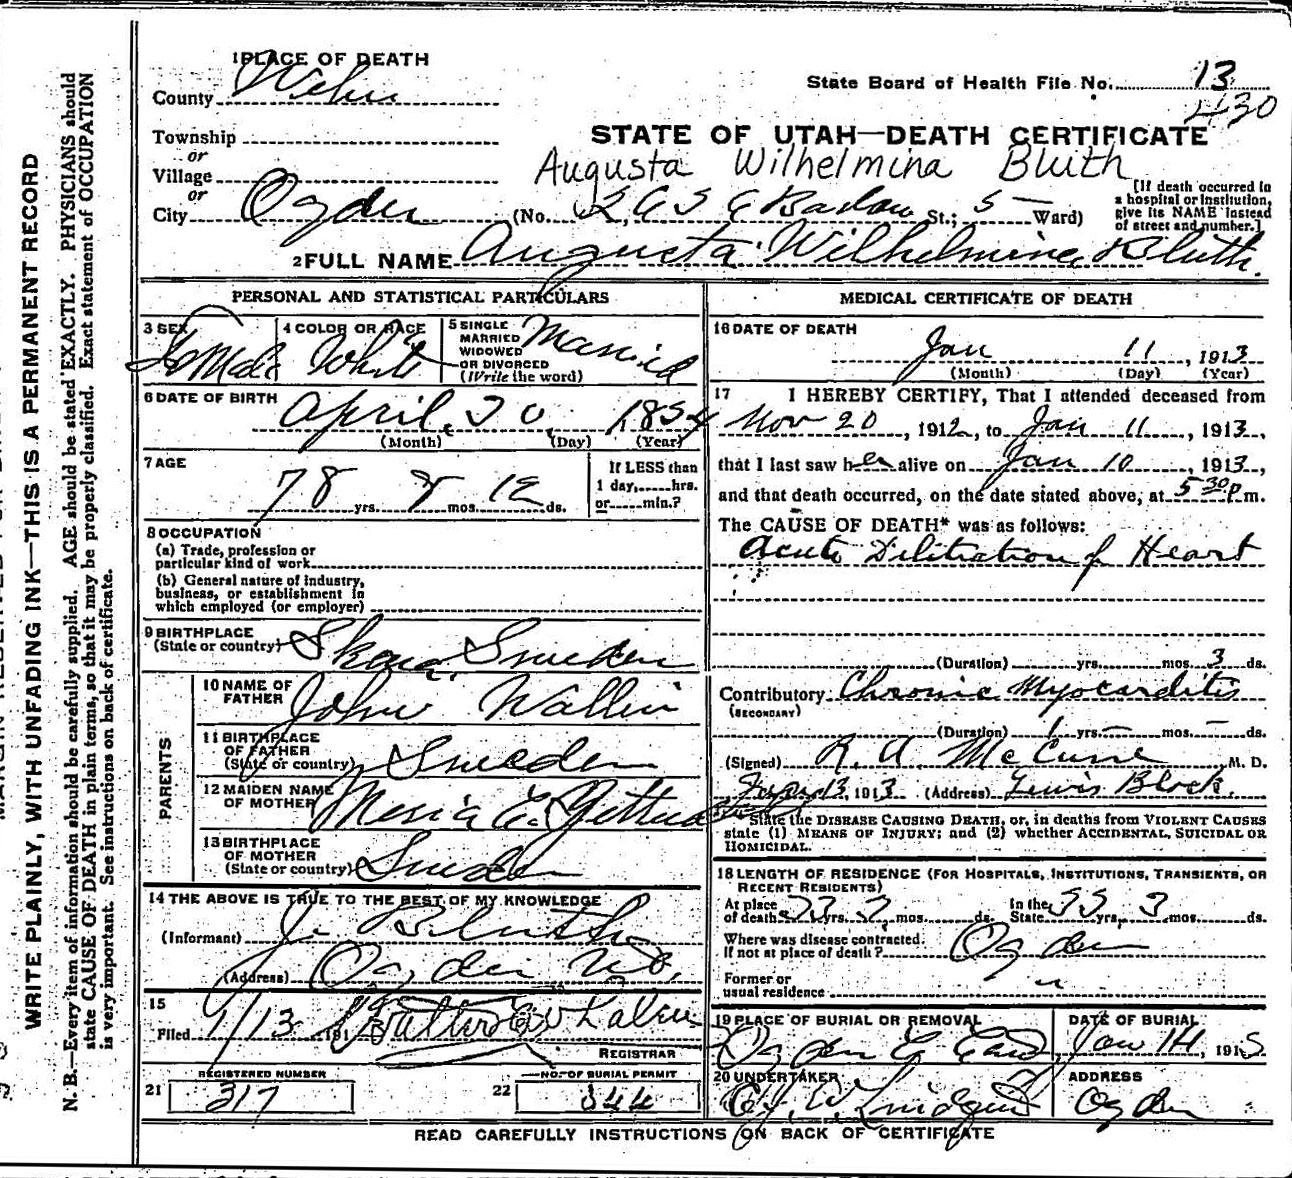 WRITE PLAINLY, WITH UNFADING INK—THIS IS A PERMANENT RECORD
N. B.—Every item of information should be carefully supplied. AGE should be stated EXACTLY. PHYSICIANS should
state CAUSE OF DEATH in plain terms, so that it may be properly classified. Exact statement of OCCUPATION
is very important. See instructions on back of certificate.
1 PLACE OF DEATH
County Weber
State Board of Health File No. 13
430
Township
or
Village
or
City Ogden
STATE OF UTAH—DEATH CERTIFICATE
Augusta Wilhelmina Bluth
(No. St.; 5 Ward)
[If death occurred in
a hospital or institution,
give its NAME instead
of street and number.]
2 FULL NAME Augusta Wilhelmina Bluth.
PERSONAL AND STATISTICAL PARTICULARS
3 SEX Female
4 COLOR OR RACE White
5 SINGLE
MARRIED
WIDOWED
OR DIVORCED
(Write the word)
Married
6 DATE OF BIRTH
April
(Month) (Day) (Year)
7 AGE
78 yrs. 8 mos. 12 ds.
If LESS than
1 day, hrs.
or min.?
8 OCCUPATION
(a) Trade, profession or
particular kind of work
(b) General nature of industry,
business, or establishment in
which employed (or employer)
9 BIRTHPLACE
(State or country) Sweden
PARENTS
10 NAME OF
FATHER John Wallin
11 BIRTHPLACE
OF FATHER
(State or country) Sweden
12 MAIDEN NAME
OF MOTHER
13 BIRTHPLACE
OF MOTHER
(State or country) Sweden
14 THE ABOVE IS TRUE TO THE BEST OF MY KNOWLEDGE
(Informant) J. Bluth
(Address) Ogden Ut.
15
Filed 1/13 191
REGISTRAR
REGISTERED NUMBER
21 317
NO. OF BURIAL PERMIT
22 344
MEDICAL CERTIFICATE OF DEATH
16 DATE OF DEATH
Jan 11, 1913
(Month) (Day) (Year)
17 I HEREBY CERTIFY, That I attended deceased from
Nov 20, 1912, to Jan 11, 1913,
that I last saw her alive on Jan 10, 1913,
and that death occurred, on the date stated above, at 5 30 p. m.
The CAUSE OF DEATH* was as follows:
Acute Dilitation of Heart
(Duration) yrs. mos. 3 ds.
Contributory Chronic Myocarditis
(SECONDARY)
(Duration) 1 yrs. — mos. — ds.
(Signed) R. A. McCune M. D.
13, 1913 (Address) Lewis Block.
State the DISEASE CAUSING DEATH, or, in deaths from VIOLENT CAUSES
state (1) MEANS OF INJURY; and (2) whether ACCIDENTAL, SUICIDAL OR
HOMICIDAL.
18 LENGTH OF RESIDENCE (FOR HOSPITALS, INSTITUTIONS, TRANSIENTS, OR
RECENT RESIDENTS)
At place
of death yrs. mos. ds.
In the
State 33 yrs. 3 mos. ds.
Where was disease contracted.
If not at place of death? Ogden
Former or
usual residence "
19 PLACE OF BURIAL OR REMOVAL
Ogden
DATE OF BURIAL
Jan 14, 191
20 UNDERTAKER
ADDRESS
Ogden
READ CAREFULLY INSTRUCTIONS ON BACK OF CERTIFICATE